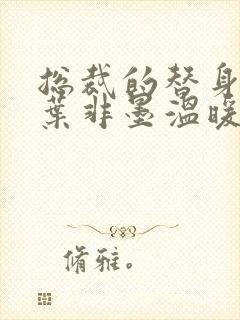 总裁的替身
葉非墨溫暖
脩雅。